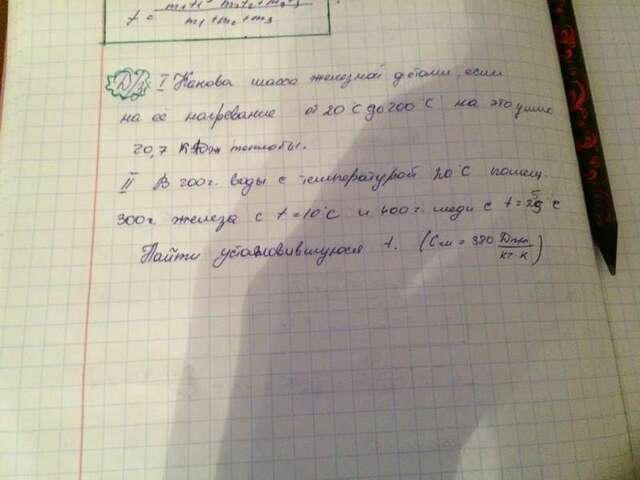 t = m₁t₁ + m₂t₂ + m₃t₃
m₁+m₂+m₃
D/з I Какова масса железной детали, если
на ее нагревание от 20°С до 200°С на это ушло
20,7 кДж теплоты.
II В 200г. воды с температурой 20°С помещ.
300г. железа с t = 10°С и 400г. меди с t = 25°С
Найти установившуюся t. (См = 380 Дж
кг·К)